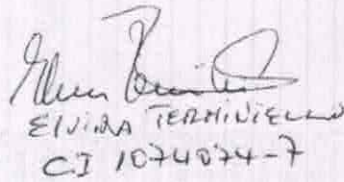 ElviRA TERMINIELLO
CI 1074074-7